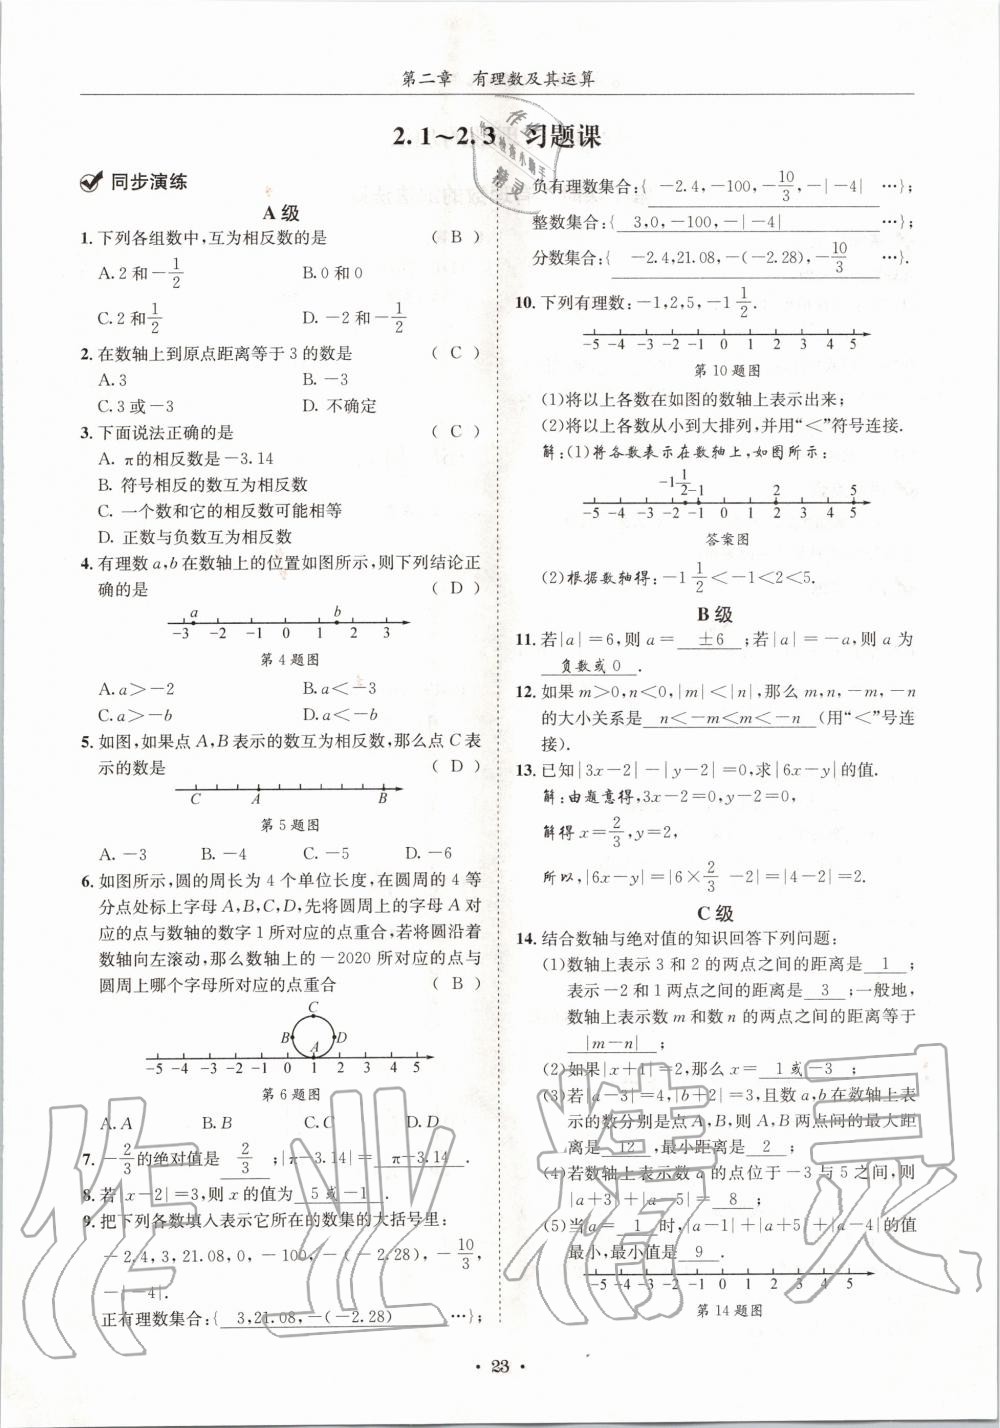 第二章 有理数及其运算
2.1～2.3 习题课
同步演练
A 级
1.下列各组数中,互为相反数的是 ( B )
A.2 和 -1/2 B.0 和 0
C.2 和 1/2 D.-2 和 -1/2
2.在数轴上到原点距离等于 3 的数是 ( C )
A.3 B.-3
C.3 或-3 D.不确定
3.下面说法正确的是 ( C )
A. π的相反数是-3.14
B. 符号相反的数互为相反数
C. 一个数和它的相反数可能相等
D. 正数与负数互为相反数
4.有理数 a,b 在数轴上的位置如图所示,则下列结论正
确的是 ( D )
a b
-3 -2 -1 0 1 2 3
第 4 题图
A.a>-2 B.a<-3
C.a>-b D.a<-b
5.如图,如果点 A,B 表示的数互为相反数,那么点 C 表
示的数是 ( D )
C A B
第 5 题图
A.-3 B.-4 C.-5 D.-6
6.如图所示,圆的周长为 4 个单位长度,在圆周的 4 等
分点处标上字母 A,B,C,D,先将圆周上的字母 A 对
应的点与数轴的数字 1 所对应的点重合,若将圆沿着
数轴向左滚动,那么数轴上的-2020 所对应的点与
圆周上哪个字母所对应的点重合 ( B )
C
B D
A
-5 -4 -3 -2 -1 0 1 2 3 4
第 6 题图
A.A B.B C.C D.D
7.-2/3的绝对值是 2/3 ;|π-3.14|= π-3.14 .
8.若|x-2|=3,则 x 的值为 5 或-1 .
9.把下列各数填入表示它所在的数集的大括号里:
-2.4,3,21.08,0,-100,-(-2.28),-10/3,
-|-4|.
正有理数集合:{ 3,21.08,-(-2.28) …};
负有理数集合:{ -2.4,-100,-10/3,-|-4| …};
整数集合:{ 3,0,-100,-|-4| …};
分数集合:{ -2.4,21.08,-(-2.28),-10/3 …}.
10.下列有理数:-1,2,5,-1 1/2.
-5 -4 -3 -2 -1 0 1 2 3 4 5
第 10 题图
(1)将以上各数在如图的数轴上表示出来;
(2)将以上各数从小到大排列,并用“<”符号连接.
解:(1)将各数表示在数轴上,如图所示:
-1 1/2 -1 2 5
-5 -4 -3 -2 -1 0 1 2 3 4 5
答案图
(2)根据数轴得:-1 1/2<-1<2<5.
B 级
11.若|a|=6,则 a= ±6 ;若|a|=-a,则 a 为
负数或 0 .
12.如果 m>0,n<0,|m|<|n|,那么 m,n,-m,-n
的大小关系是 n<-m<m<-n (用“<”号连
接).
13.已知|3x-2|-|y-2|=0,求|6x-y|的值.
解:由题意得,3x-2=0,y-2=0,
解得 x=2/3,y=2,
所以,|6x-y|=|6×2/3-2|=|4-2|=2.
C 级
14.结合数轴与绝对值的知识回答下列问题:
(1)数轴上表示 3 和 2 的两点之间的距离是 1 ;
表示-2 和 1 两点之间的距离是 3 ;一般地,
数轴上表示数 m 和数 n 的两点之间的距离等于
|m-n| ;
(2)如果|x+1|=2,那么 x= 1 或-3 ;
(3)若|a-3|=4,|b+2|=3,且数 a,b 在数轴上表
示的数分别是点 A,B,则 A,B 两点间的最大距
离是 12 ,最小距离是 2 ;
(4)若数轴上表示数 a 的点位于-3 与 5 之间,则
|a+3|+|a-5|= 8 ;
(5)当 a= 1 时,|a-1|+|a+5|+|a-4|的值
最小,最小值是 9 .
-5 -4 -3 -2 -1 0 1 2 3 4 5
第 14 题图
· 23 ·
作业精灵